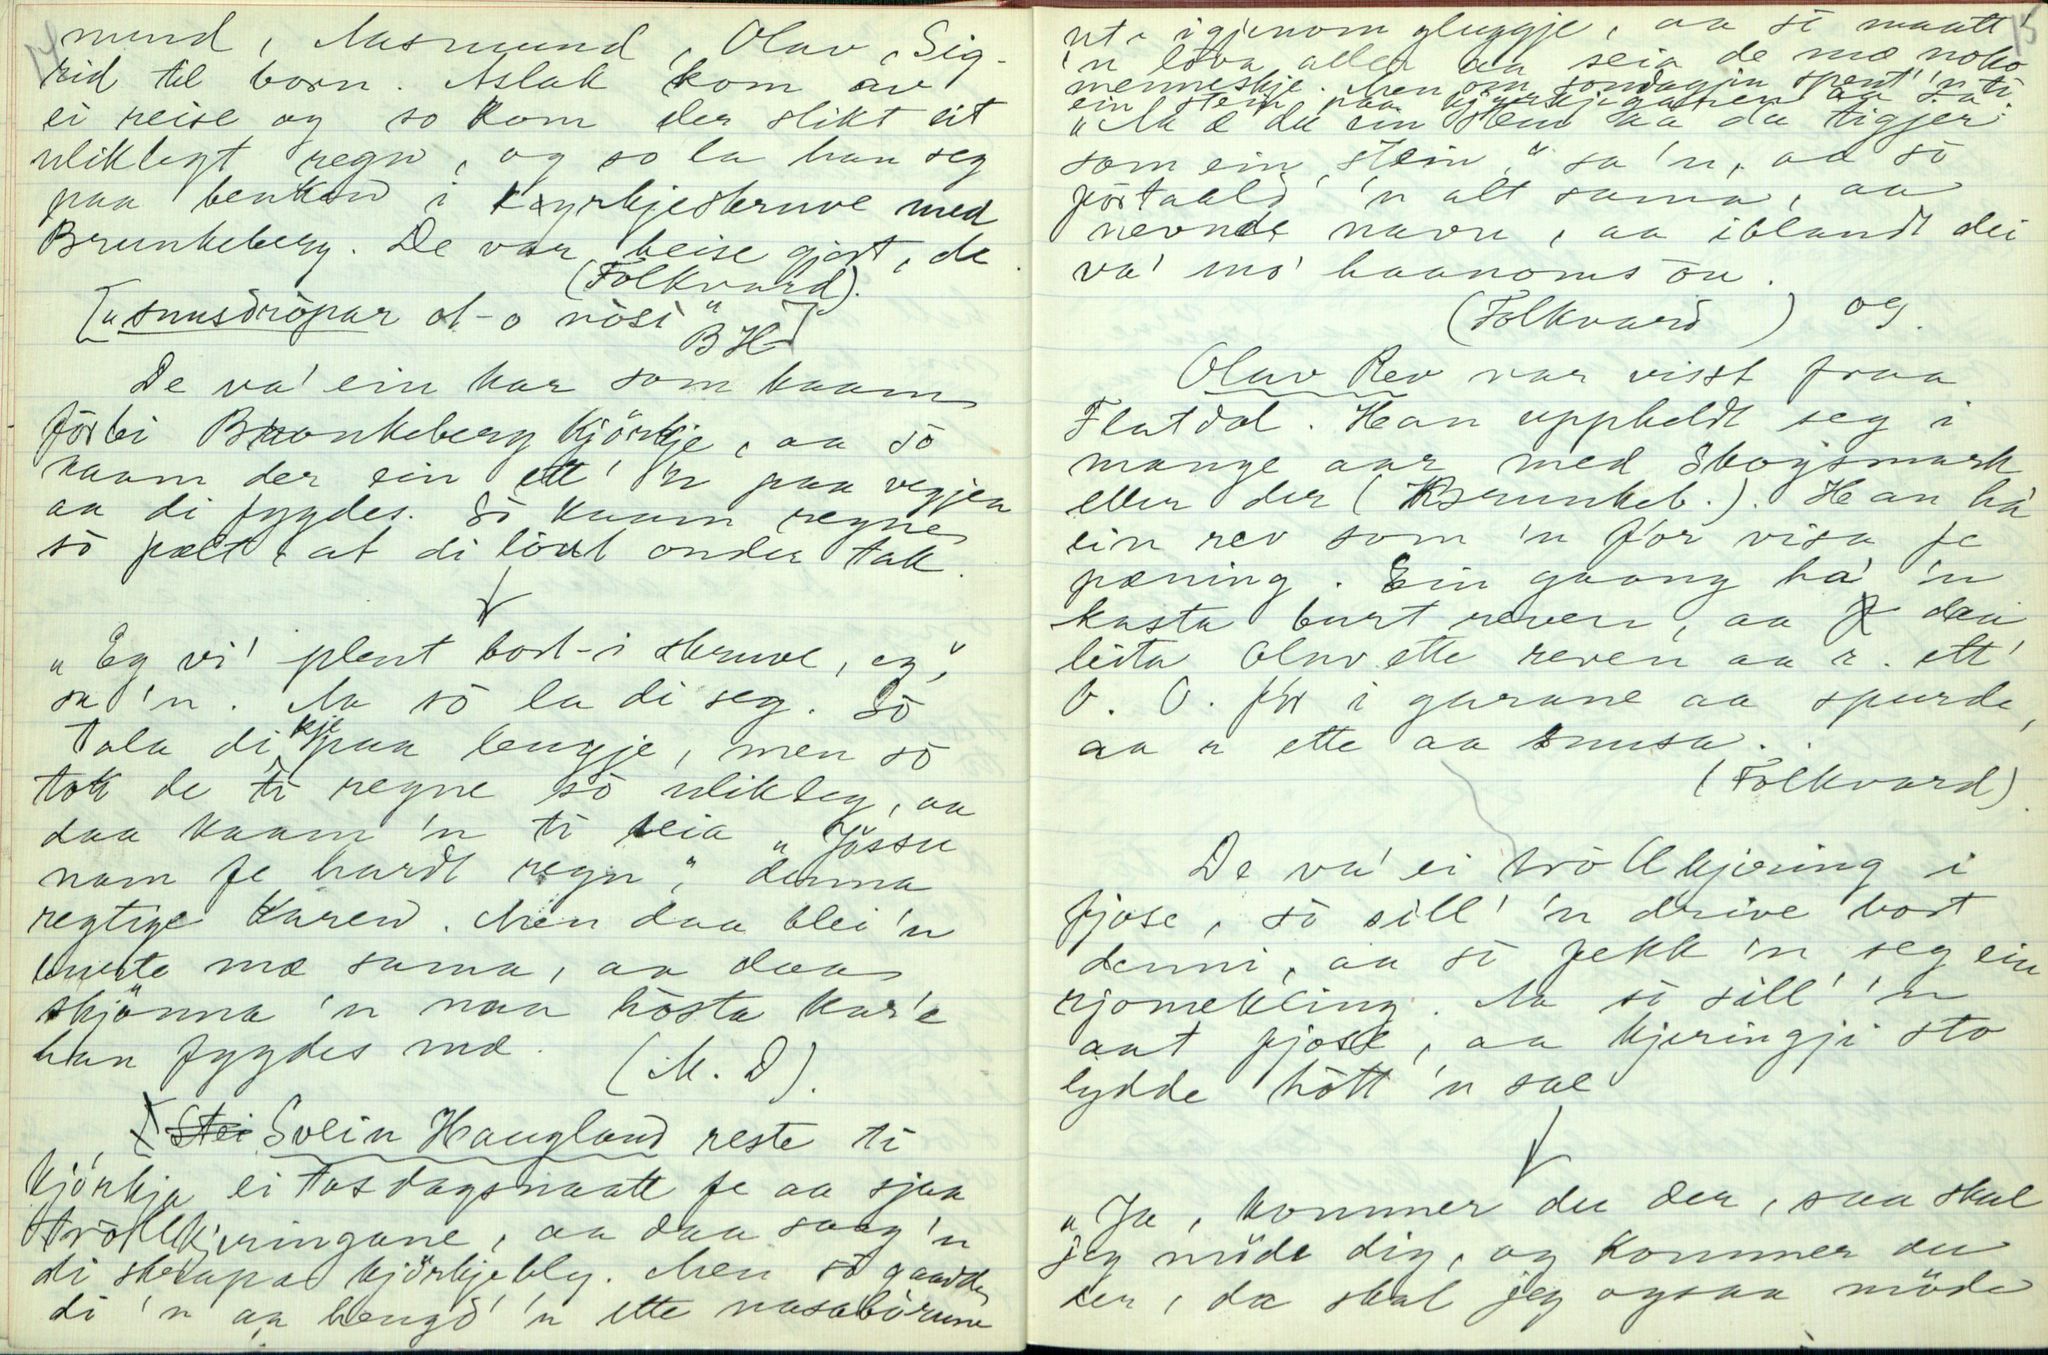 14
mund, Aasmund, Olav, Sig-
rid til born. Aslak kom av
ei reise og so kom der slikt eit
uliklegt regn, og so la han seg
paa benken i Kyrkjeskruve med
Brunkeberg. De var beise gjort, de.
(Folkvard).
["snusdröpar ot-o nösi"
BH]
De va' ein kar som kaam
förbi Bronkeberg kjörkje, aa sò
kaam der ein ett' 'n paa vegjen
aa di fygdes. Sò kaam regne
sò pælt, at di löut onder tak.
"Eg vi' plent bort-i skruve, eg,"
sa 'n. Aa sò la di seg. Sò
tala di kje paa lengje, men sò
tok de ti regne sò ulikleg, aa
daa kaam 'n ti seia "Jössu
nam fe hardt regn", denna
regtige karen. Men daa blei 'n
burte mæ sama, aa daa
skjönna 'n naa hösta kar'e
han fygdes mæ. (M. D).
[Stei Svein Haugland reste ti
kjörkja ei tosdagsnaatt fe aa sjaa
tröllkjeringane, aa daa saag 'n
di skrapa kjörkjebly. Men sò gaadde
di 'n aa hengd' 'n ette nasabörune
15
ut-igjenom gluggje, aa sò maatt'
'n lova aller aa seia de mæ noko
menneskje. Men om sondagjen spent' 'n ti
ein stein paa kjyrkjegaren aa sa:
"Aa æ du ein stein saa du tigjer
som ein stein," sa 'n, aa sò
förtaald' 'n alt sama, aa
nevnde navn, aa iblandt dei
va' mo' haanoms ou.
(Folkvard) og.
Olav Rev var visst fraa
Flatdal. Han uppheldt seg i
mange aar med Skogsmark
eller der (Brunkeb.). Han ha'
ein rev som 'n for visa fe
pæning. Ein gaang ha' 'n
kasta burt reven, aa daa
leita Olav ette reven aa r. ett'
O. O. for i garane aa spurde,
aa r ette aa snusa.
(Folkvard).
De va' ei tröllkjering i
fjose, sò sill' 'n drive bort
denni, aa sò fekk 'n seg ein
rjomekling. Aa sò sill' 'n
aat fjose, aa kjeringji sto
lydde hött 'n sae
"Ja, kommer du der, saa skal
jeg möde dig, og kommer du
der, da skal jeg ogsaa möde